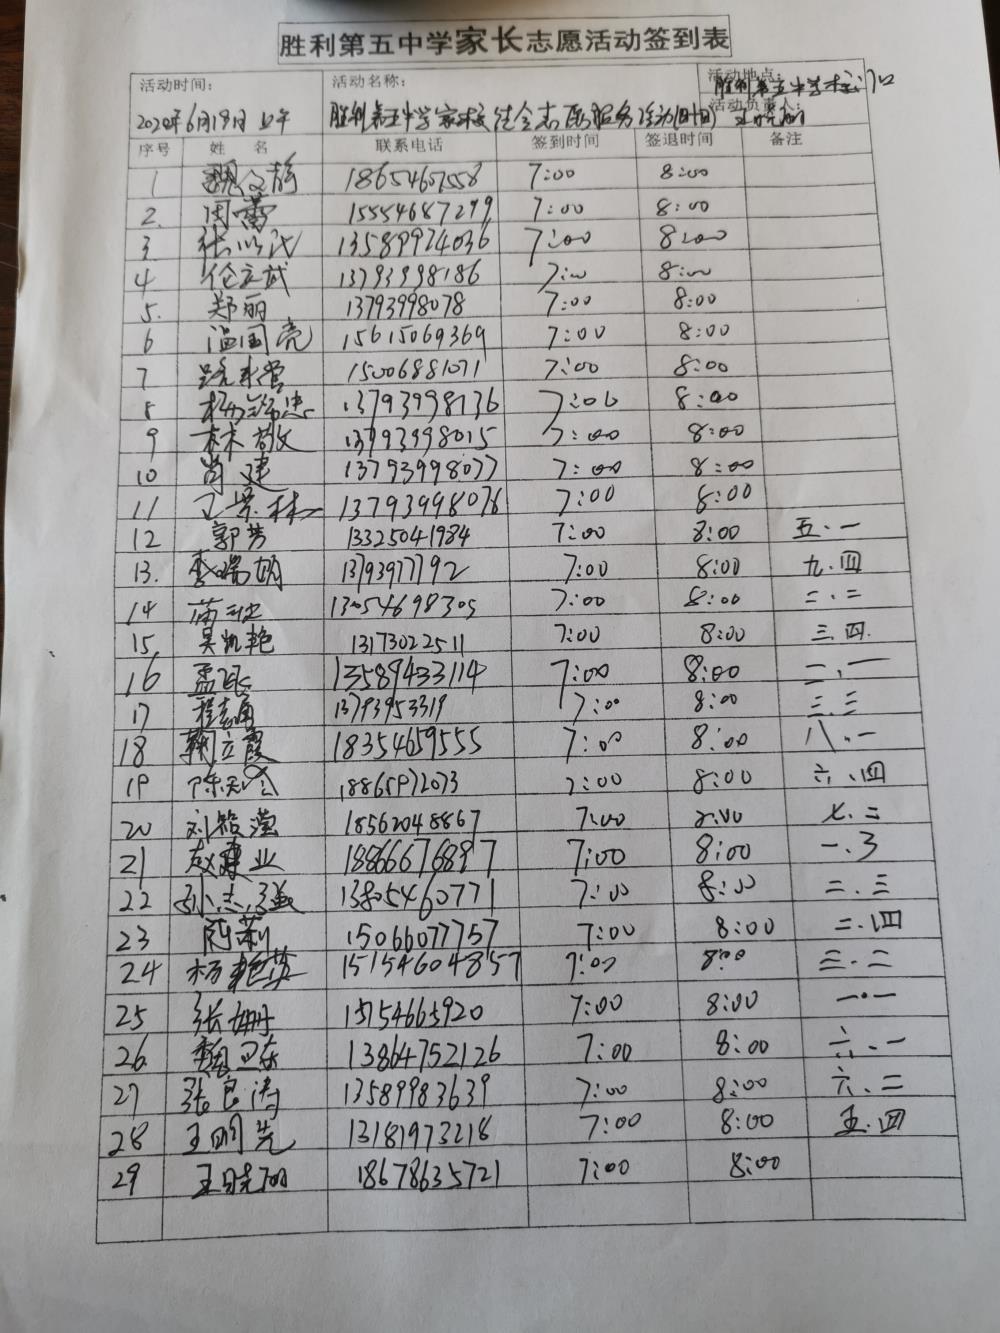 胜利第五中学家长志愿活动签到表
活动时间： 活动名称： 活动地点：
胜利第五中学校门口
活动负责人：
2020年6月19日 上午 胜利第五中学家校 志愿服务活动 王晓丽
序号 姓 名 联系电话 签到时间 签退时间 备注
1 魏文静 18654607558 7:00 8:00
2. 周蕾 15554687299 7:00 8:00
3. 13589974036 7:00 8:00
4 伦立武 13793998186 7:00 8:00
5. 郑丽 13793998078 7:00 8:00
6 温国亮 15615069369 7:00 8:00
7 15006881071 7:00 8:00
8 13793998136 7:00 8:00
9 林敬文 13793998015 7:00 8:00
10 肖建 13793998077 7:00 8:00
11 王景林 13793998076 7:00 8:00
12 郭芳 13325041984 7:00 8:00 五.一
13. 李瑞娟 13793977792 7:00 8:00 九.四
14 13054698305 7:00 8:00 二.二
15. 吴凯艳 13173022511 7:00 8:00 三.四.
16 孟 13589433114 7:00 8:00 二.一
17 程志勇 13793953319 7:00 8:00 三.三
18 鞠立霞 18354659555 7:00 8:00 八.一
19 陈 18865972073 7:00 8:00 六.四
20 刘筱滢 18562048867 7:00 8:00 七.二
21 赵建业 18866676897 7:00 8:00 一.3
22 孙志强 13805460771 7:00 8:00 二.三
23 陈莉 15066077757 7:00 8:00 二.四
24 杨艳萍 15154604857 7:00 8:00 三.二
25 张姗 15154665920 7:00 8:00 一.一
26 魏卫东 13864752126 7:00 8:00 六.一
27 张良涛 13589983639 7:00 8:00 六.二
28 王明先 13181973218 7:00 8:00 五.四
29 王晓丽 18678635721 7:00 8:00